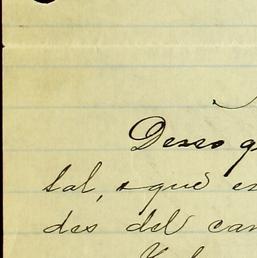 Deseo q
tal, s que es
des del can